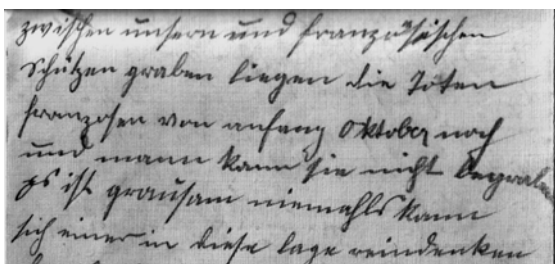 zwischen unsern und französischen
schützen graben liegen die Toten
franzosen von anfang Oktober noch
und mann kann sie nicht begraben
es ist grausam niemahls kann
sich einer in diese lage reindenken